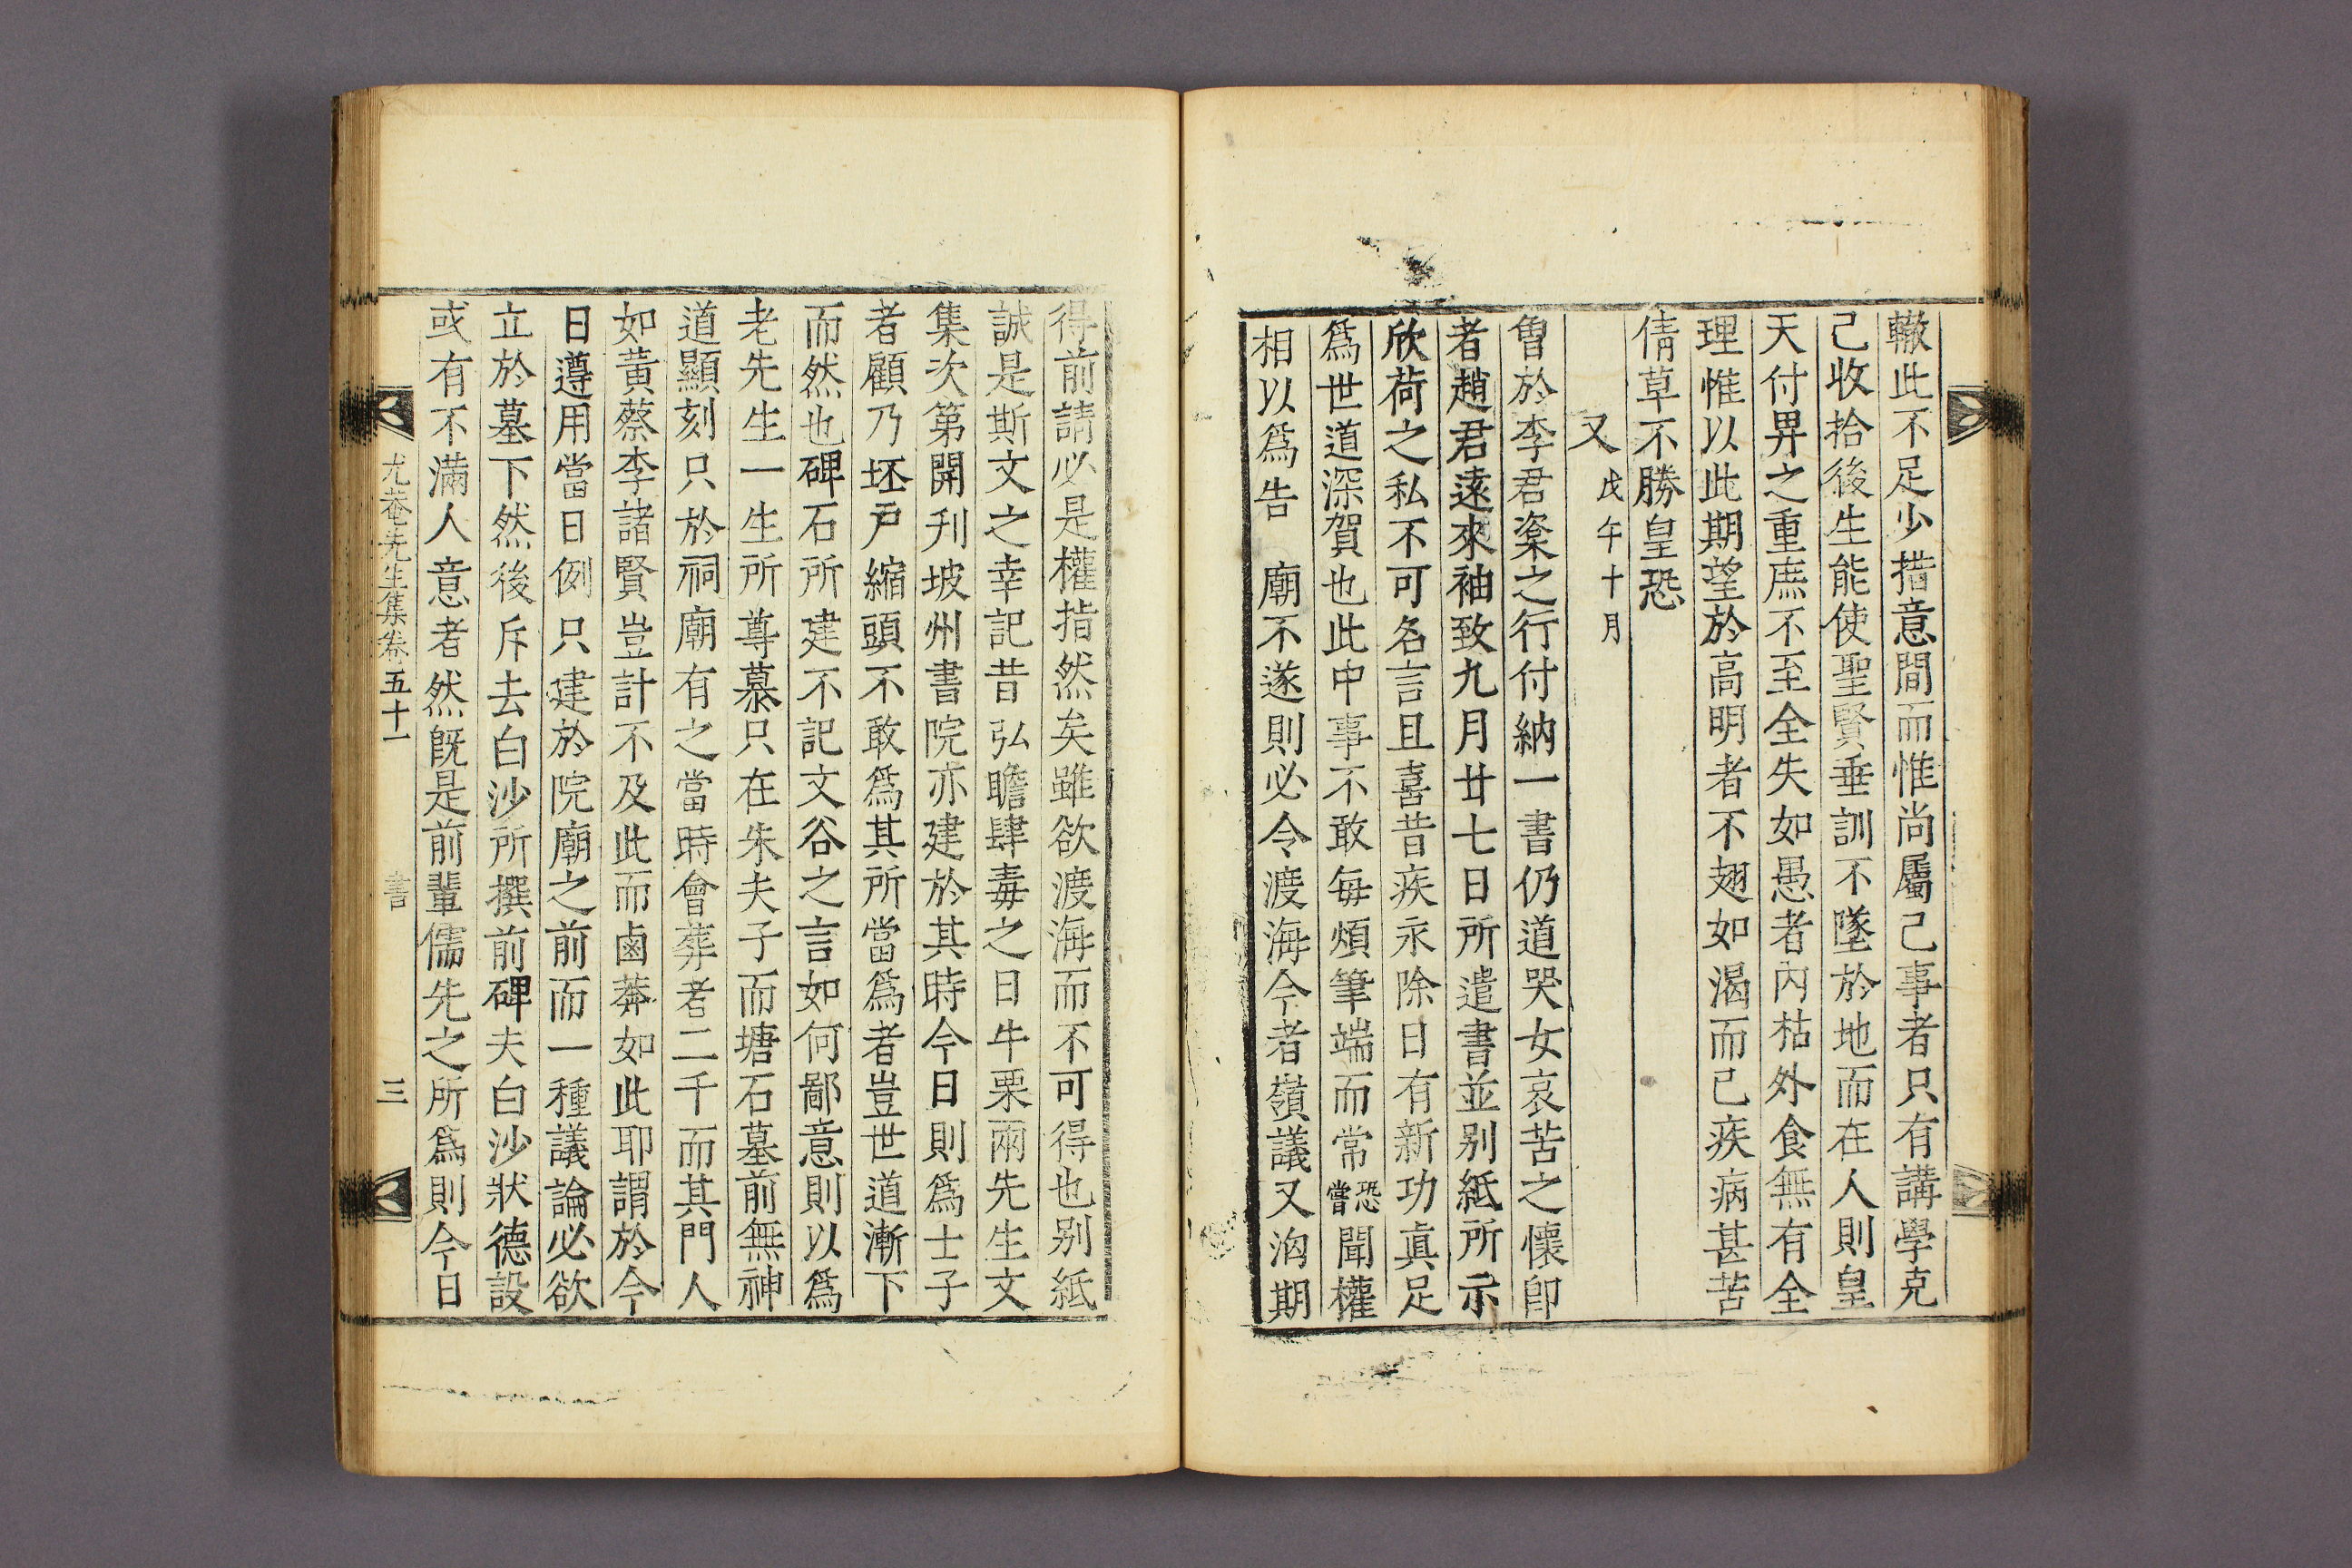 轍此不足少措意間而惟尚屬己事者只有講學克
己收拾後生能使聖賢垂訓不墜於地而在人則皇
天付畀之重庶不至全失如愚者內枯外食無有全
理惟以此期望於高明者不翅如渴而已疾病甚苦
倩草不勝皇恐
又 戊午十月
曾於李君楶之行付納一書仍道哭女哀苦之懷卽
者趙君遠來袖致九月廿七日所遣書並別紙所示
欣荷之私不可名言且喜昔疾永除日有新功眞足
爲世道深賀也此中事不敢每煩筆端而常恐嘗聞權
相以爲告 廟不遂則必令渡海今者嶺議又洶期
得前請必是權指然矣雖欲渡海而不可得也別紙
誠是斯文之幸記昔弘瞻肆毒之日牛栗兩先生文
集次第開刊坡州書院亦建於其時今日則爲士子
者顧乃坯戶縮頭不敢爲其所當爲者豈世道漸下
而然也碑石所建不記文谷之言如何鄙意則以爲
老先生一生所尊慕只在朱夫子而塘石墓前無神
道顯刻只於祠廟有之當時會葬者二千而其門人
如黃蔡李諸賢豈計不及此而鹵莽如此耶謂於今
日遵用當日例只建於院廟之前而一種議論必欲
立於墓下然後斥去白沙所撰前碑夫白沙狀德設
或有不滿人意者然旣是前輩儒先之所爲則今日
尤菴先生集卷五十一 書 三